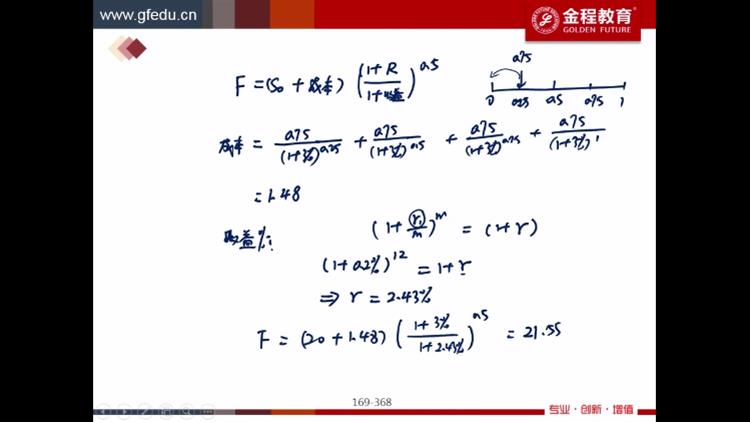 www.gfedu.cn
金程教育
GOLDEN FUTURE
F = (S₀ + 成本) ((1+R)/(1+收益))^0.5
0.75
0 0.25 0.5 0.75 1
成本 = 0.75/(1+3%)^0.25 + 0.75/(1+3%)^0.5 + 0.75/(1+3%)^0.75 + 0.75/(1+3%)^1
= 1.48
收益%:
(1 + r₁/m)^m = (1+r)
(1+0.2%)^12 = 1+r
⇒ r = 2.43%
F = (20 + 1.48) ((1+3%)/(1+2.43%))^0.5 = 21.55
169-368
专业·创新·增值